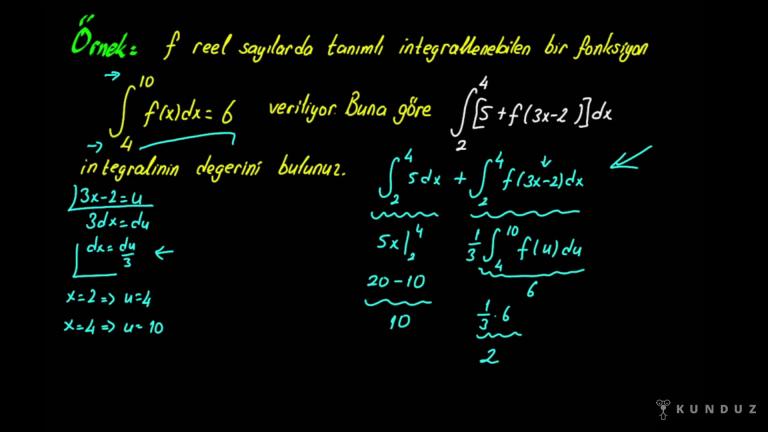 Örnek: f reel sayılarda tanımlı integrallenebilen bir fonksiyon
→ ∫₄¹⁰ f(x)dx = 6 veriliyor. Buna göre ∫₂⁴ [5 + f(3x-2)]dx
integralinin degerini bulunuz.
∫₂⁴ 5dx + ∫₂⁴ f(3x-2)dx
3x-2 = u
3dx = du
dx = du/3 ←
x=2 => u=4
x=4 => u=10
5x|₂⁴
20-10
10
1/3 ∫₄¹⁰ f(u)du
6
1/3 . 6
2
KUNDUZ